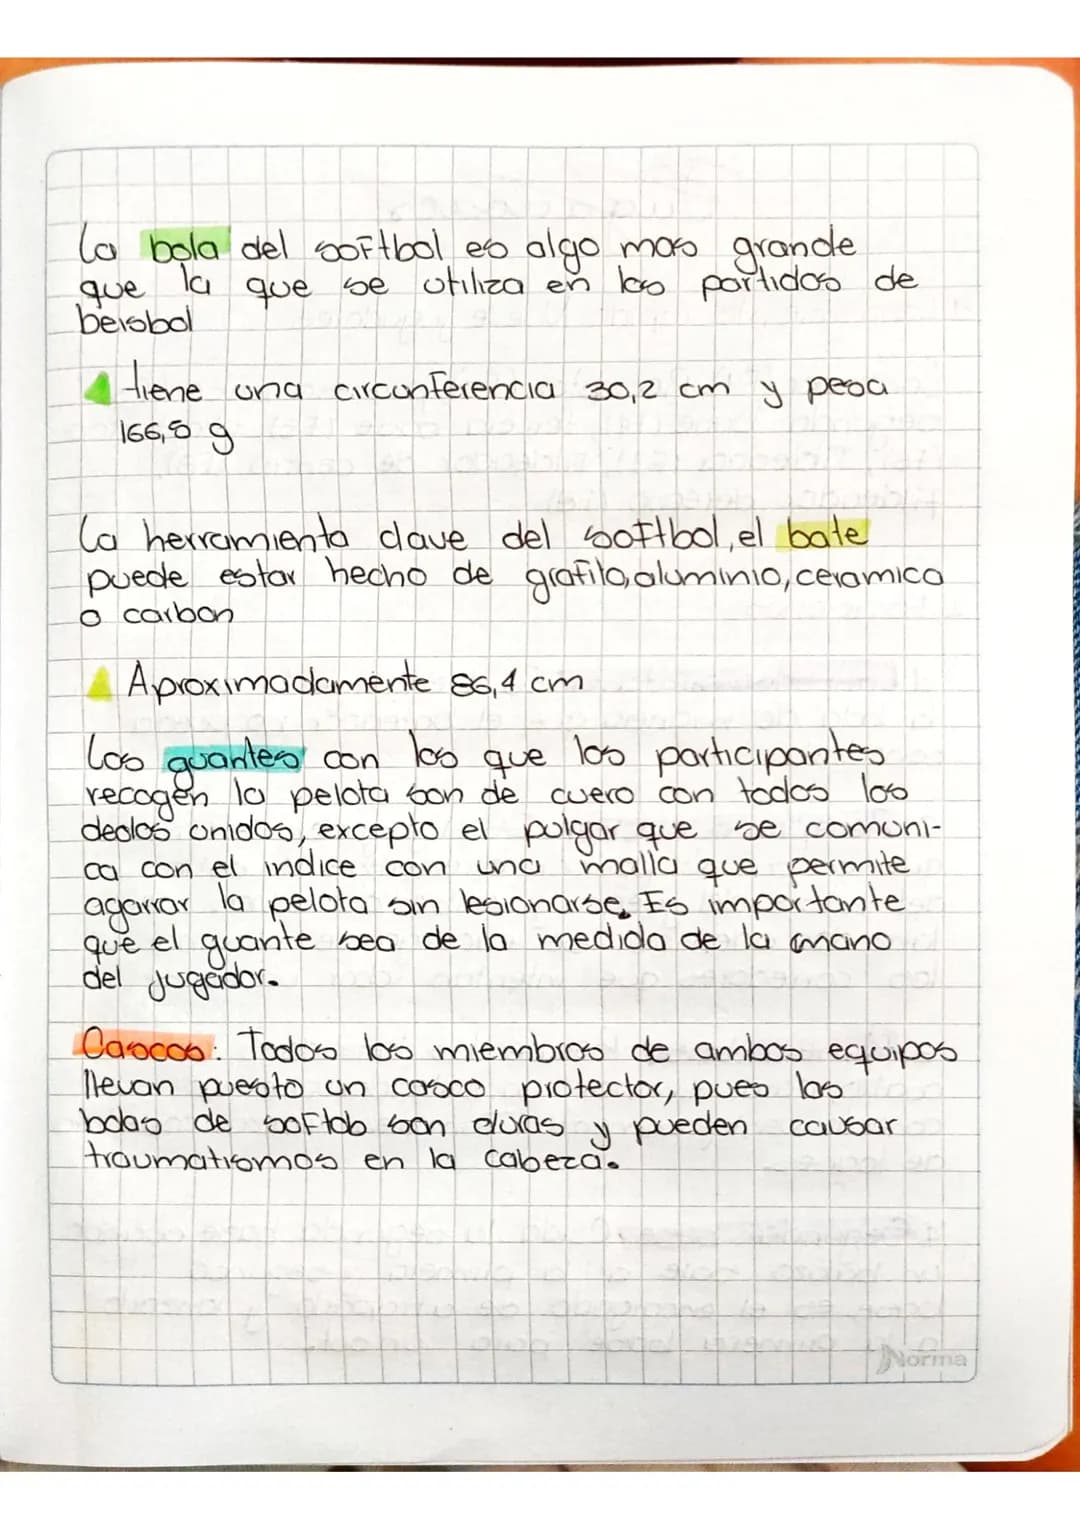 La bola del softbol es algo mas grande
que la que se utiliza en los partidos de
beisbol
tiene una circunferencia 30,2 cm y pesa
166,8 g
La herramienta clave del softbol, el bate
puede estar hecho de grafilo, aluminio, ceramica
o carbon
Aproximadamente 86,4 cm
Los guantes con los que los participantes
recogen la pelota son de cuero con todos los
dedos unidos, excepto el pulgar que se comuni-
ca con el indice con una malla que permite
agarrar la pelota sin lesionarse. Es importante
que el guante sea de la medida de la mano
del jugador.
Cascos: Todos los miembros de ambos equipos
llevan puesto un casco protector, pues las
bolas de softob son duras y pueden causar
traumatismos en la cabeza.
Norma